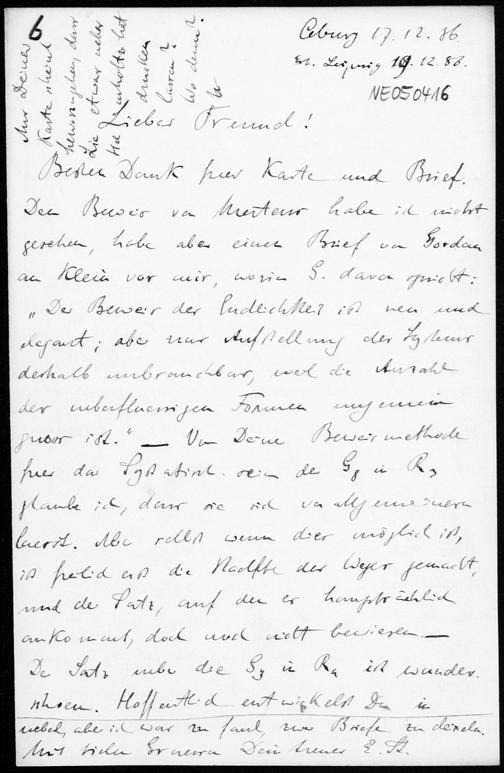 6
Coburg 17.12.86
Leipzig 19.12.86.
NE050416
Aus Deiner
Karte scheint
hervorzugehen, dass
Lie etwas ueber
hat
drucken
lassen?
Wo denn?
Lieber Freund!
Besten Dank fuer Karte und Brief.
Den Beweis von Mertens habe ich nicht
gesehen, habe aber einen Brief von Gordan
an Klein vor mir, worin G. davon spricht:
„Der Beweis der Endlichkeit ist neu und
elegant; aber zur Aufstellung der Systeme
deshalb unbrauchbar, weil die Anzahl
der ueberfluessigen Formen ungemein
gross ist." — Von Deiner Beweismethode
fuer das der G in R
glaube ich, dass sie sich verallgemeinern
laesst. Aber selbst wenn dies moeglich ist,
ist freilich erst die Haelfte des Weges gemacht,
und der Satz, auf den es hauptsächlich
ankommt, doch noch nicht bewiesen. —
Der Satz ueber die G in R ist wunder-
schoen. Hoffentlich entwickelst Du ihn
nebel, aber ich war zu faul, zwei Briefe zu
Mit vielen Gruessen Dein treuer E. St.